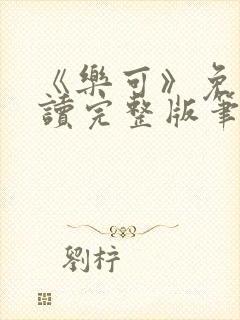 《樂可》免
讀完整版筆
劉梓